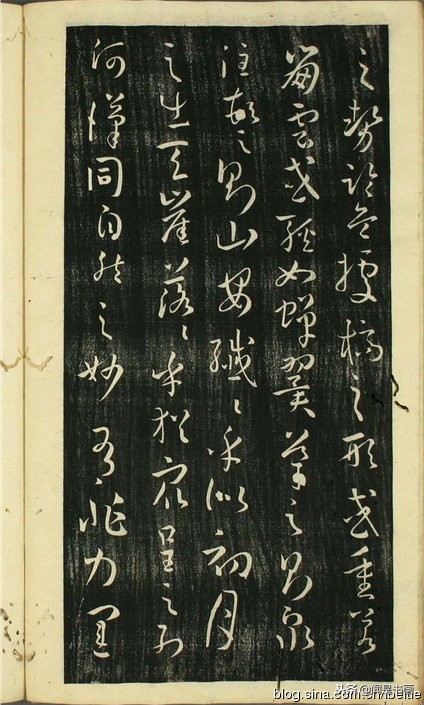 之勢臨危據槁之形或重若
崩雲或輕如蟬翼導之則泉
注頓之則山安纖々乎似初月
之出天崖落々乎猶眾星之列
河漢同自然之妙有非力運
头条 @闻是书画
blog.sina.com.cn/beitie